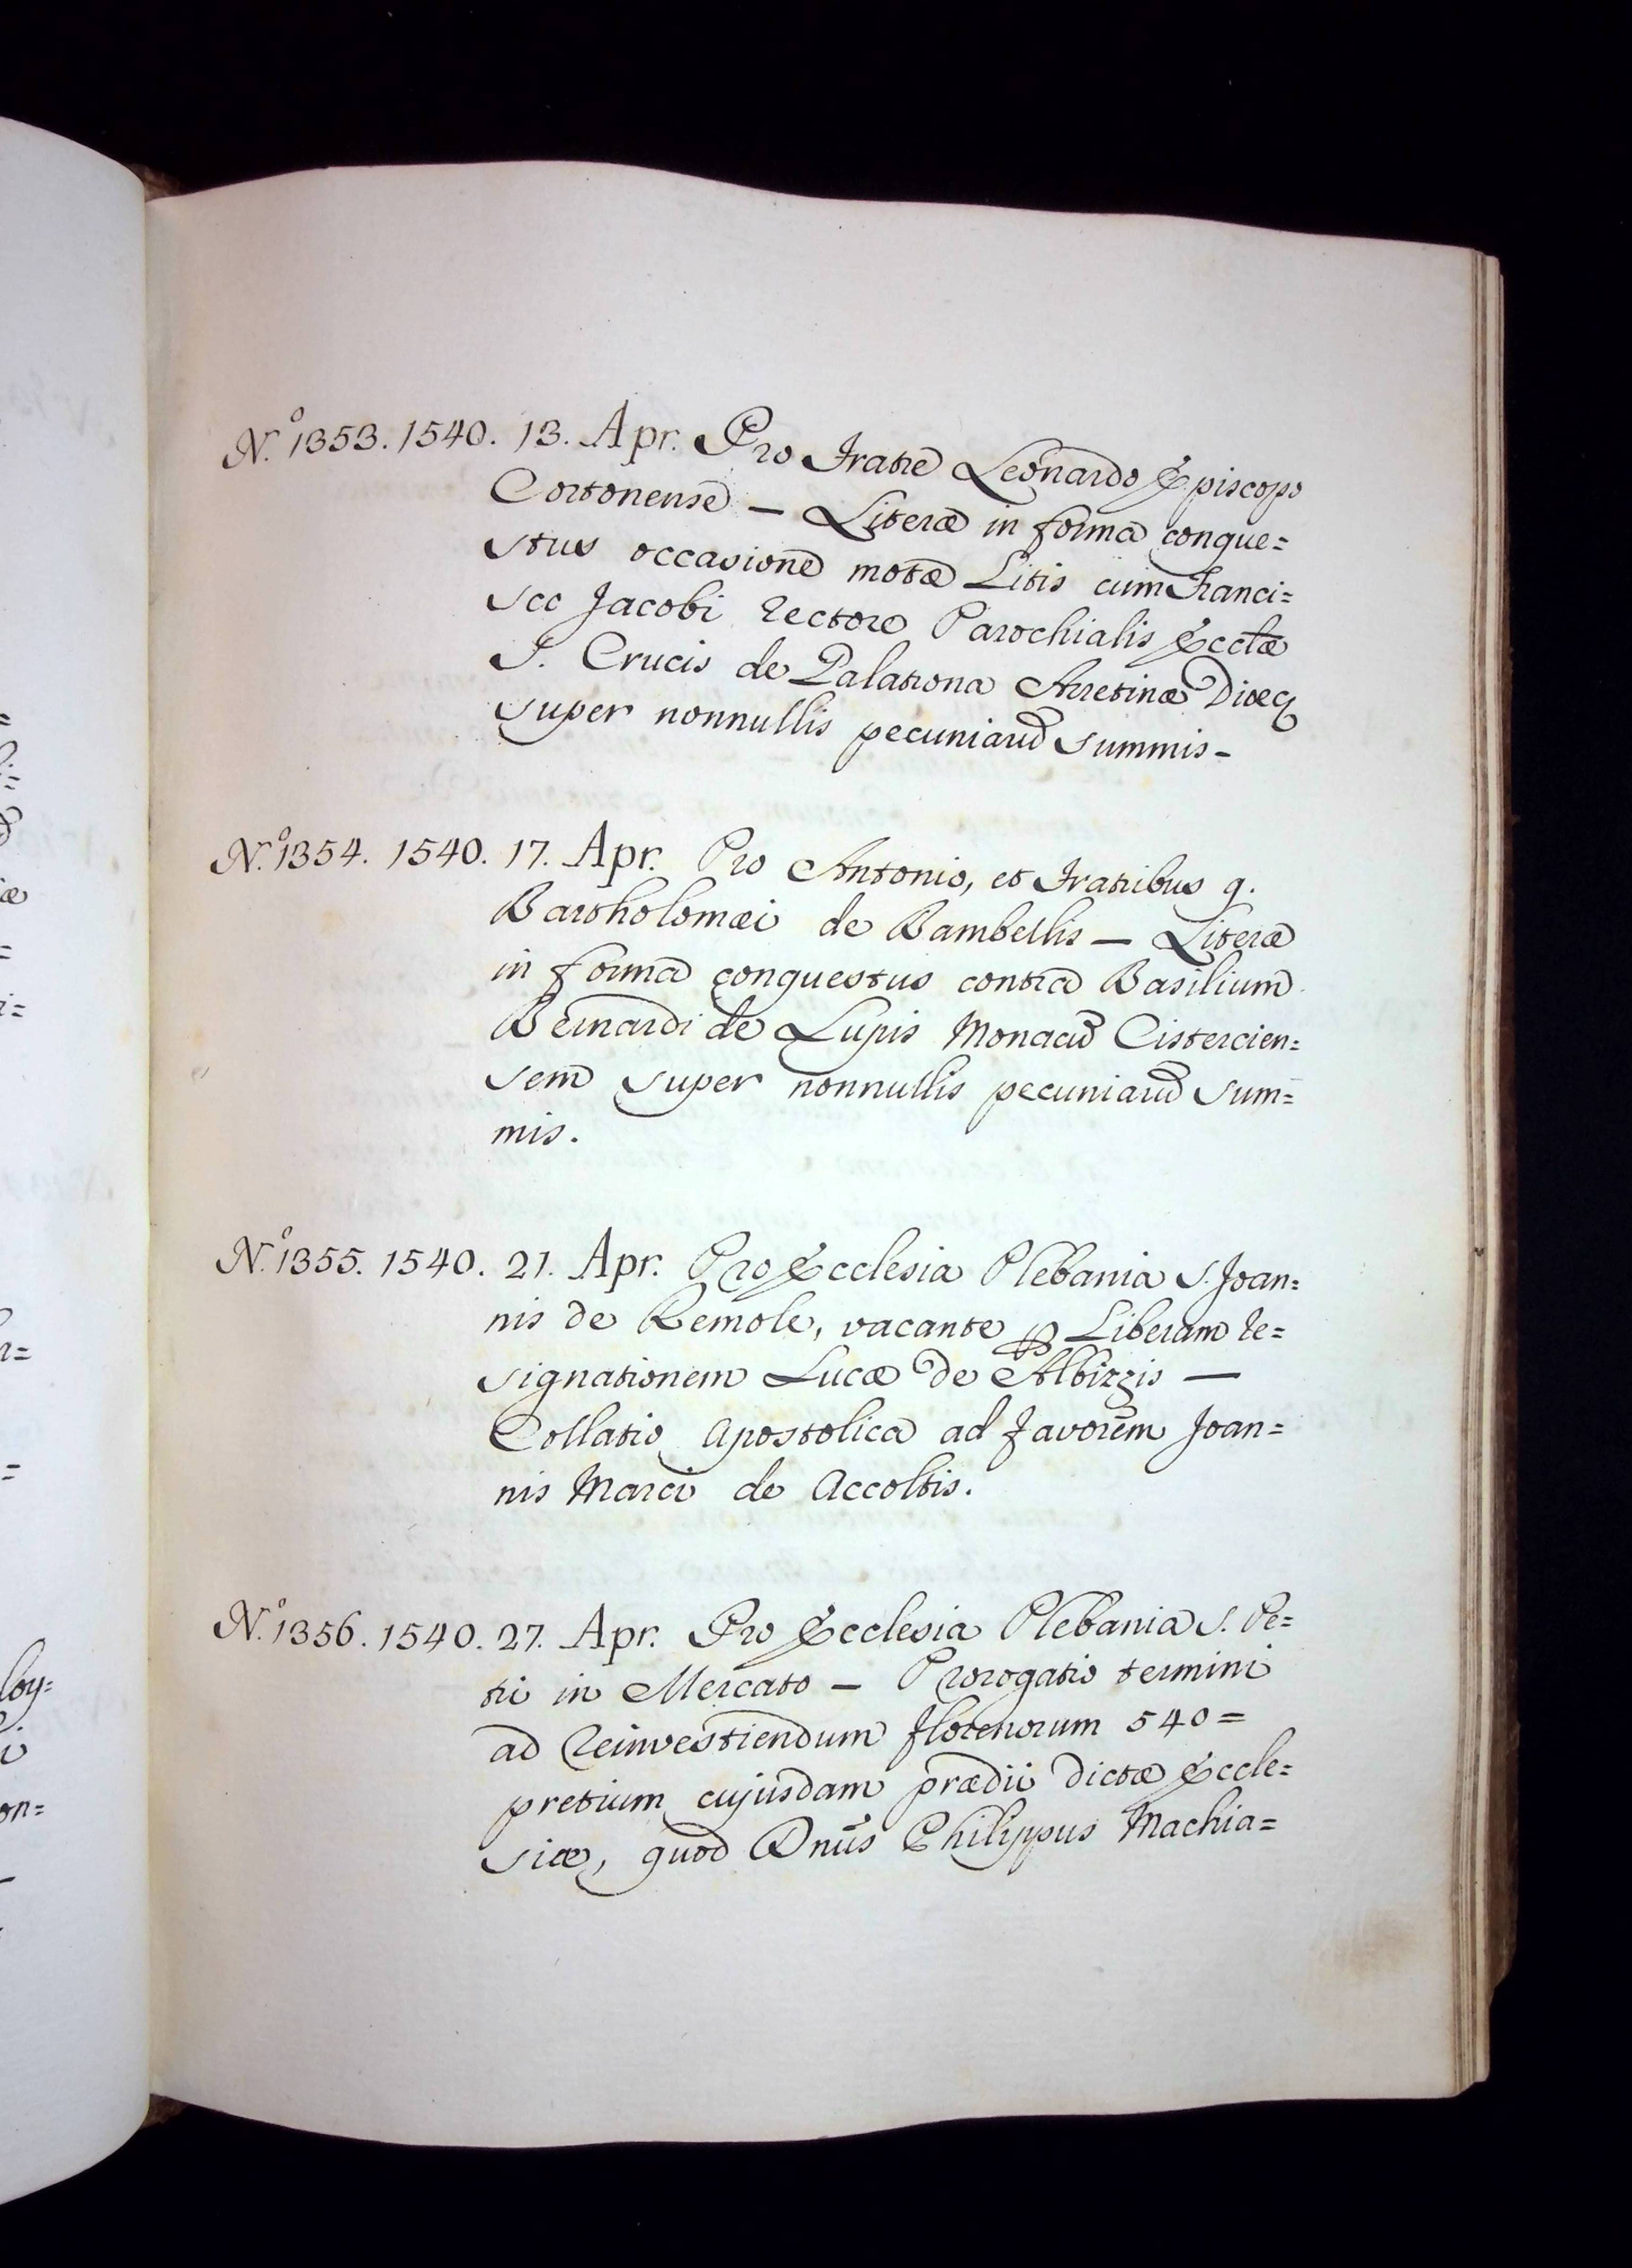 N.º 1353. 1540. 13. Apr. Pro Fratre Leonardo Episcopo
Cortonense — Literæ in forma conque=
stus occasione motæ Litis cum Franci=
sco Jacobi Rectore Parochialis Ecclæ
S. Crucis de Palationa Arretinæ Diœc
super nonnullis pecuniarũ summis –
N.º 1354. 1540. 17. Apr. Pro Antonio, et Fratribus q.
Bartholomæi de Bambellis — Literæ
in forma conquestus contra Basilium
Bernardi de Lupis Monacũ Cistercien=
sem super nonnullis pecuniarũ sum=
mis.
N.º 1355. 1540. 21. Apr. Pro Ecclesia Plebania S. Joan=
nis de Remole, vacante ꝑ Liberam re=
signationem Lucæ de Albizzis —
Collatio Apostolica ad favorem Joan=
nis Marci de Accoltis.
N.º 1356. 1540. 27. Apr. Pro Ecclesia Plebania S. Pe=
tri in Mercato – Prorogatio termini
ad reinvestiendum florenorum 540=
pretium cujusdam prædii dictæ Eccle=
siæ, quod Dnũs Philippus Machia=